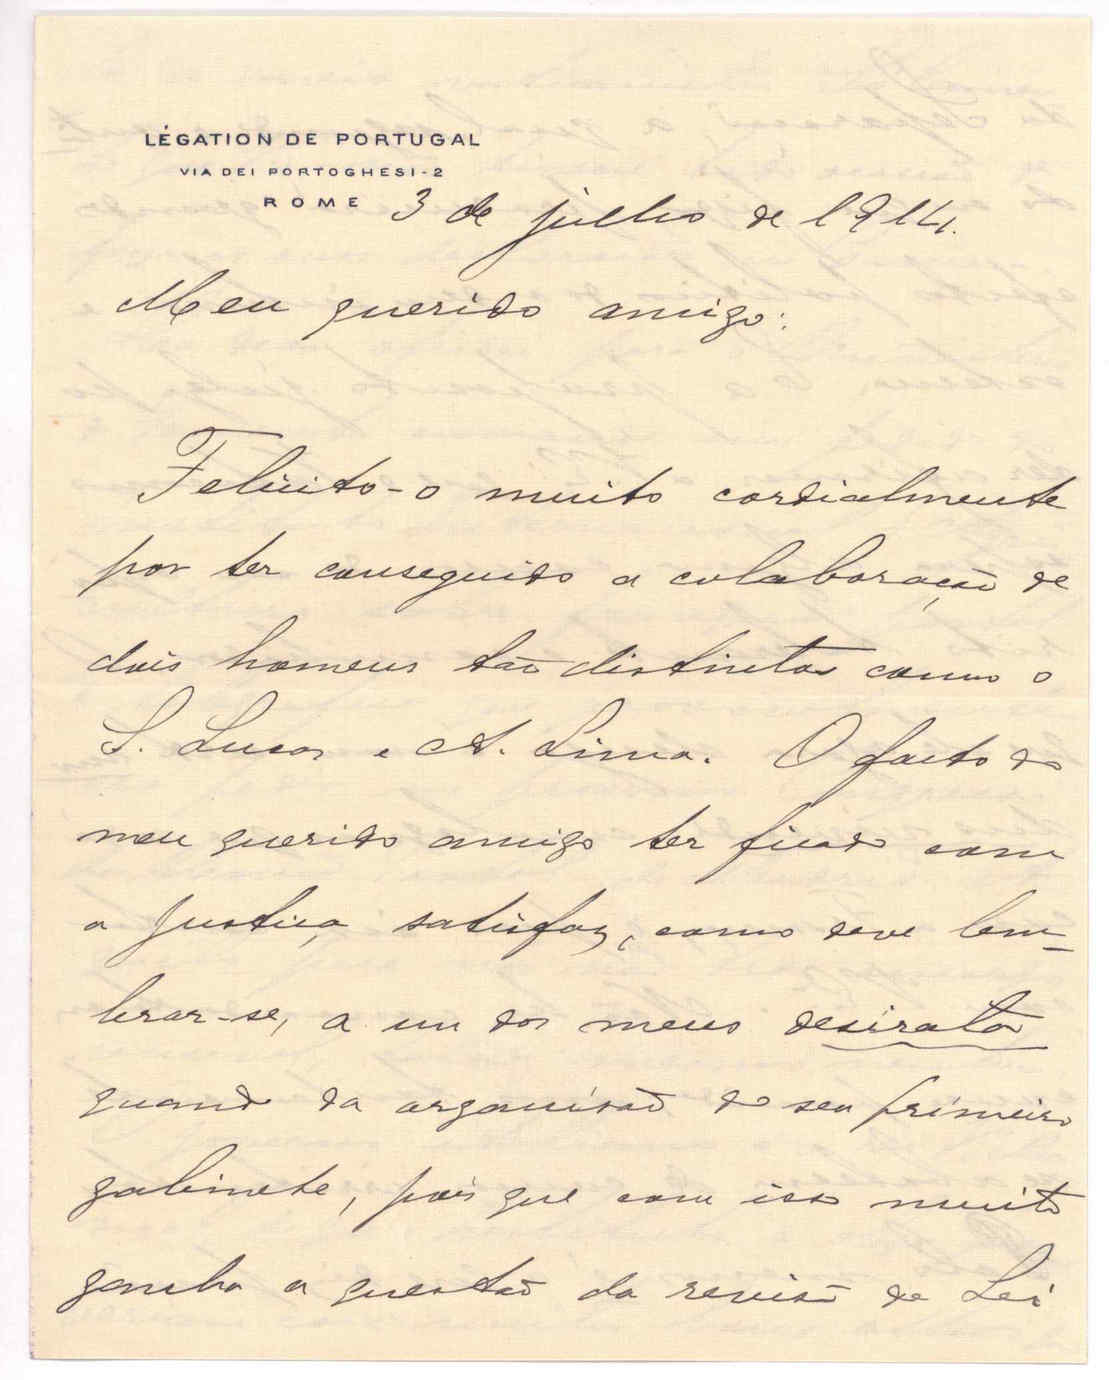 LÉGATION DE PORTUGAL
VIA DEI PORTOGHESI-2
ROME
3 de julho de 1914.
Meu querido amigo:
Felicito-o muito cordialmente
por ter conseguido a colaboração de
dois homens tão distintos como o
S. Lucas e A. Lima. O facto do
meu querido amigo ter ficado com
a Justiça satisfaz, como deve lem-
brar-se, a um dos meus desirata
quando da organisão do seu primeiro
gabinete, pois que com isso muito
ganha a questão da revisão de Lei